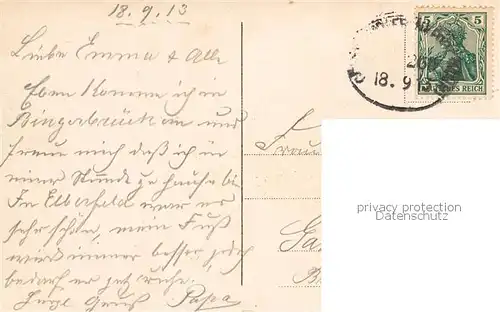 18.9.13
Liebe Emma & Alle
Eben komme ich in
Bingerbrück an und
freue mich daß ich in
einer Stunde zu hause bi
In Elberfeld war es
sehr schön, mein Fuß
wird immer besser, jedoch
bedarf er jetz ruhe.
Herzl Gruß Papa
5 5
DEUTSCHES REICH
18. 9
Frau
privacy protection
Datenschutz